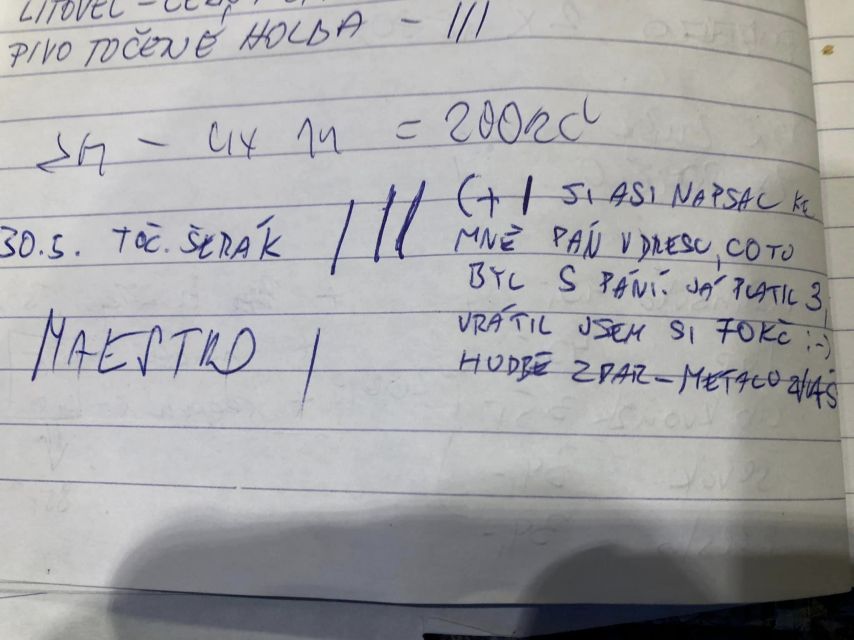 LITOVEL - ČERN
PIVO TOČENÉ HOLBA - III
- 4x = 200Kč
30.5. TOČ. ŠERÁK | III (+1 SI ASI NAPSAL KE
MNĚ PÁN V DRESU, CO TO
BYL S PANÍ. JÁ PLATIL 3,
VRÁTIL JSEM SI 70Kč :-)
MAESTRO |
HUDBĚ ZDAR - METALU ZVLÁŠ